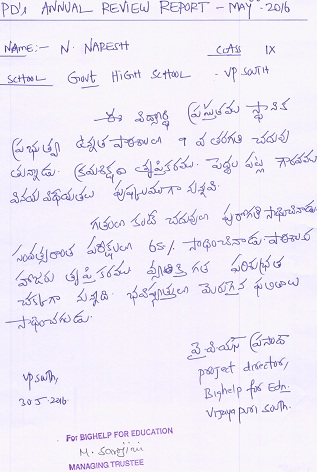 PD's ANNUAL REVIEW REPORT - MAY - 2016
NAME:- N. NARESH CLASS IX
SCHOOL Govt HIGH SCHOOL - VP SOUTH
ఈ విద్యార్థి ప్రస్తుతము స్థానిక
ప్రభుత్వ ఉన్నత పాఠశాలలో 9 వ తరగతి చదువు
తున్నాడు. క్రమశిక్షణ తృప్తికరము. పెద్దల పట్ల గౌరవము
వినయ విధేయతలు పుష్కలముగా ఉన్నవి.
గతంలో కంటే చదువులో పురోగతి సాధించినాడు.
సంవత్సరాంత పరీక్షలలో 65% సాధించినాడు. పాఠశాల
హాజరు తృప్తికరము. వ్యక్తిగత పరిశుభ్రత
చక్కగా ఉన్నది. భవిష్యత్తులో మెరుగైన ఫలితాలు
సాధించగలడు.
వై.వి.యస్ ప్రసాద్
project director,
Bighelp for Edn.
Vijayapuri South.
VP South,
30-5-2016.
For BIGHELP FOR EDUCATION
M. Sarojini
MANAGING TRUSTEE